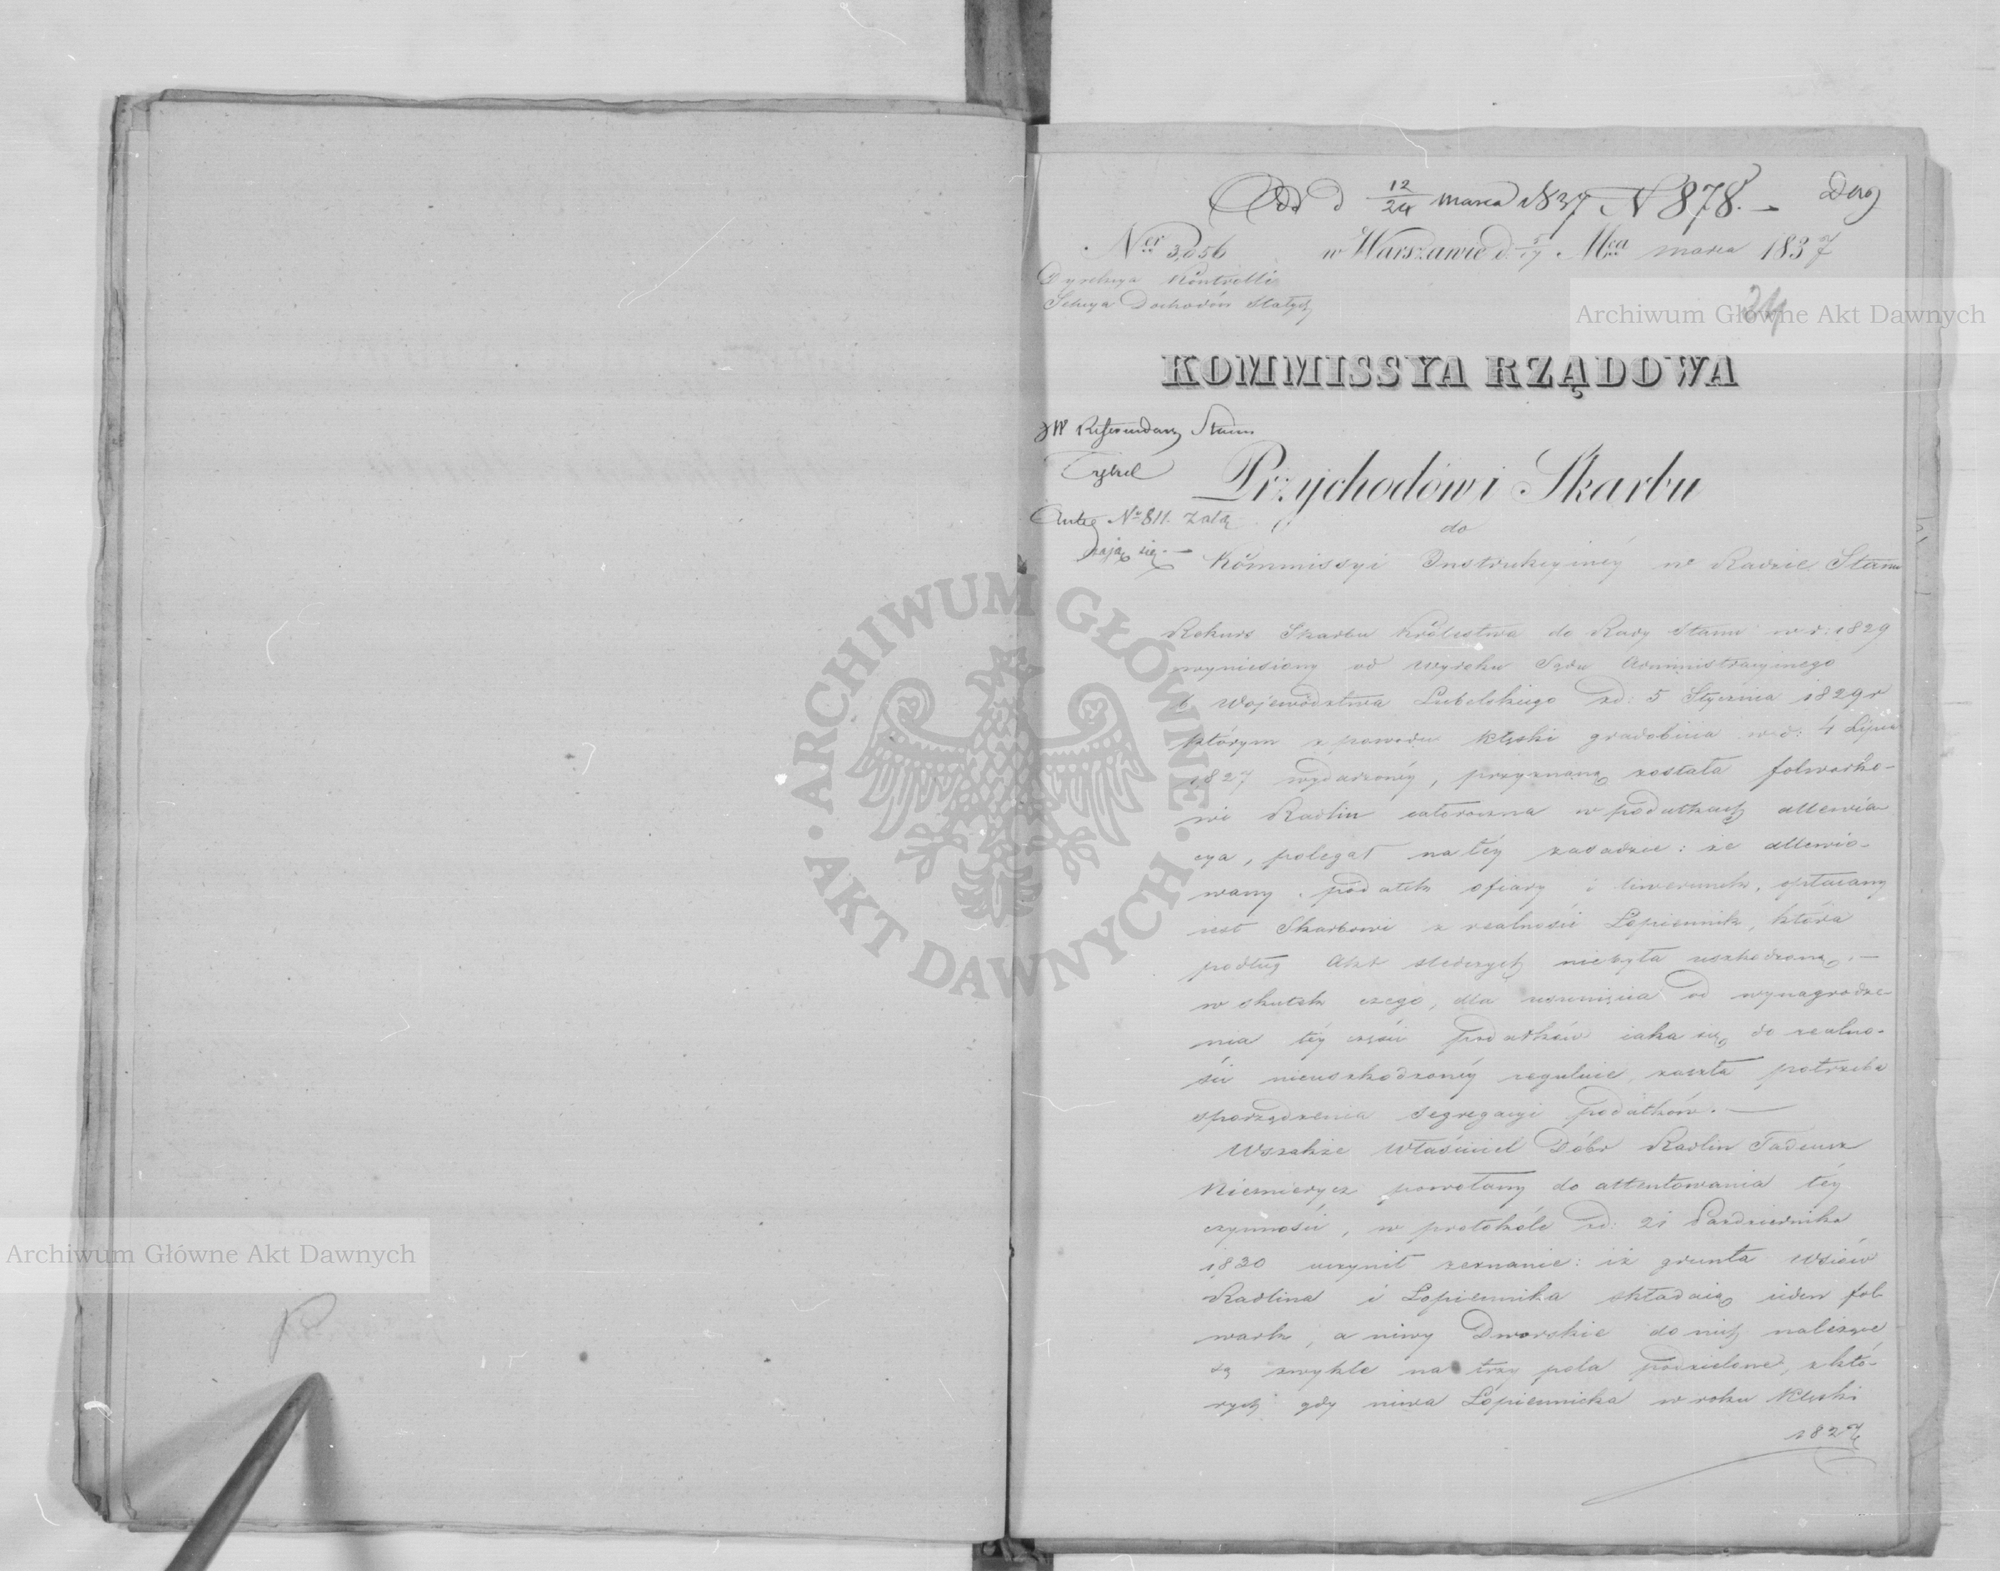 Odd d 12/24 Marca 1837 N 878. —
Ner 3,056 w Warszawie d. 5/17 Mca Marca 1837
Dyrekcya Kontrolli
Sekcya Dochodów Stałych
24
KOMMISSYA RZĄDOWA
JW Referendarz Stanu
Przychodów i Skarbu
Nº 811. załą
do
dzają się. —
Kommissyi Instrukcyinéy w Radzie Stanu
Rekurs Skarbu Królestwa do Rady Stanu w r: 1829
wyniesiony od wyroku Sądu Administracyinego
b Województwa Lubelskiego zd: 5 Stycznia 1829 r
którym z powodu klęski gradobicia wd: 4 Lipca
1827 wydarzonéy, przyznaną została folwarko-
wi Radlin całoroczna w podatkach allewia-
cya, polegał na téy zasadzie: że allewio-
wany podatek ofiary i liwerunek, opłacany
iest Skarbowi z realności Łopiennik, która
podług Akt śledczych niebyła uszkodzoną. —
w skutek czego, dla usunięcia od wynagrodze-
nia téy części podatków iaka się do realno-
ści nieuszkodzonéy reguluie, zaszła potrzeba
sporządzenia segregacyi podatków. —
Wszakże Właściciel Dóbr Radlin Tadeusz
Niemierycz powołany do attentowania téy
czynności, w protokóle zd: 21 Października
1830 uczynił zeznanie: iż grunta Wsiów
Radlina i Łopiennika składaią ieden fol-
wark, a niwy Dworskie do nich należące
są zwykle na trzy pola podzielone, z któ-
rych gdy niwa Łopiennicka w roku klęski
1827
Archiwum Główne Akt Dawnych
Archiwum Główne Akt Dawnych
ARCHIWUM GŁÓWNE
AKT DAWNYCH